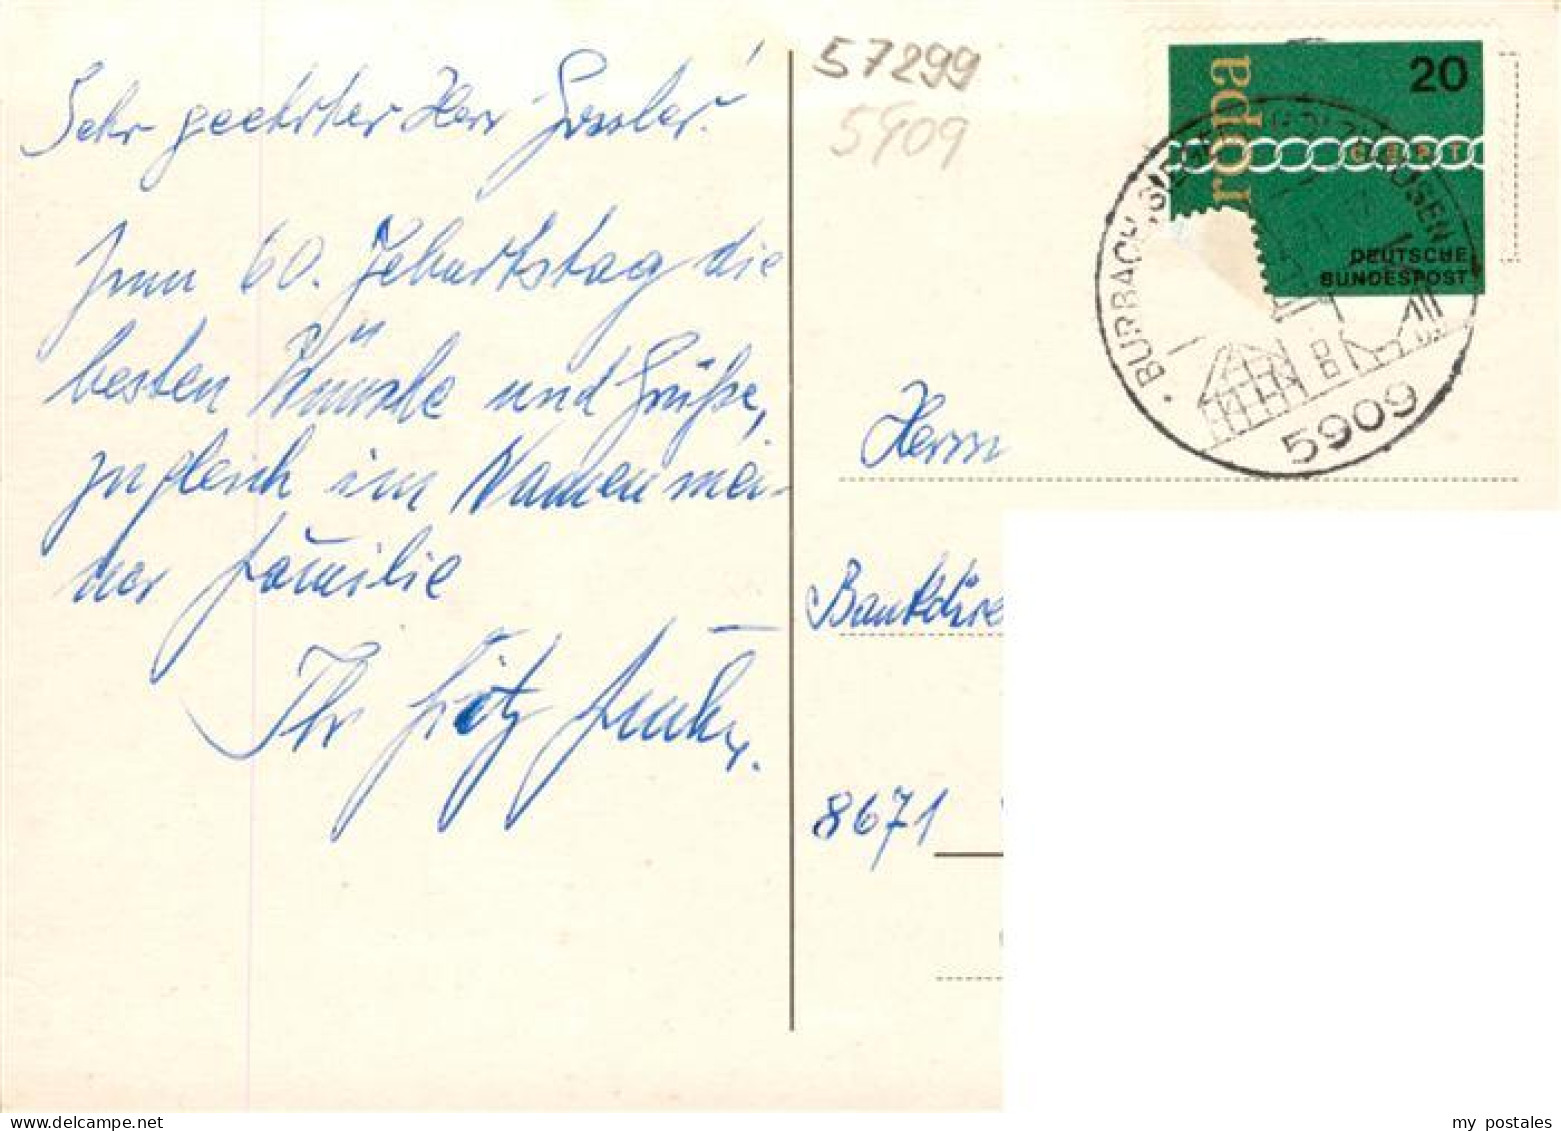 Sehr geehrter Herr Gossler!
Zum 60. Geburtstag die
besten Wünsche und Grüße,
zugleich im Namen mei-
ner Familie
Ihr Fritz
57299
5909
ropa
20
CEPT
DEUTSCHE
BUNDESPOST
BURBACH
5909
Herrn
Bankdire
8671
my postales